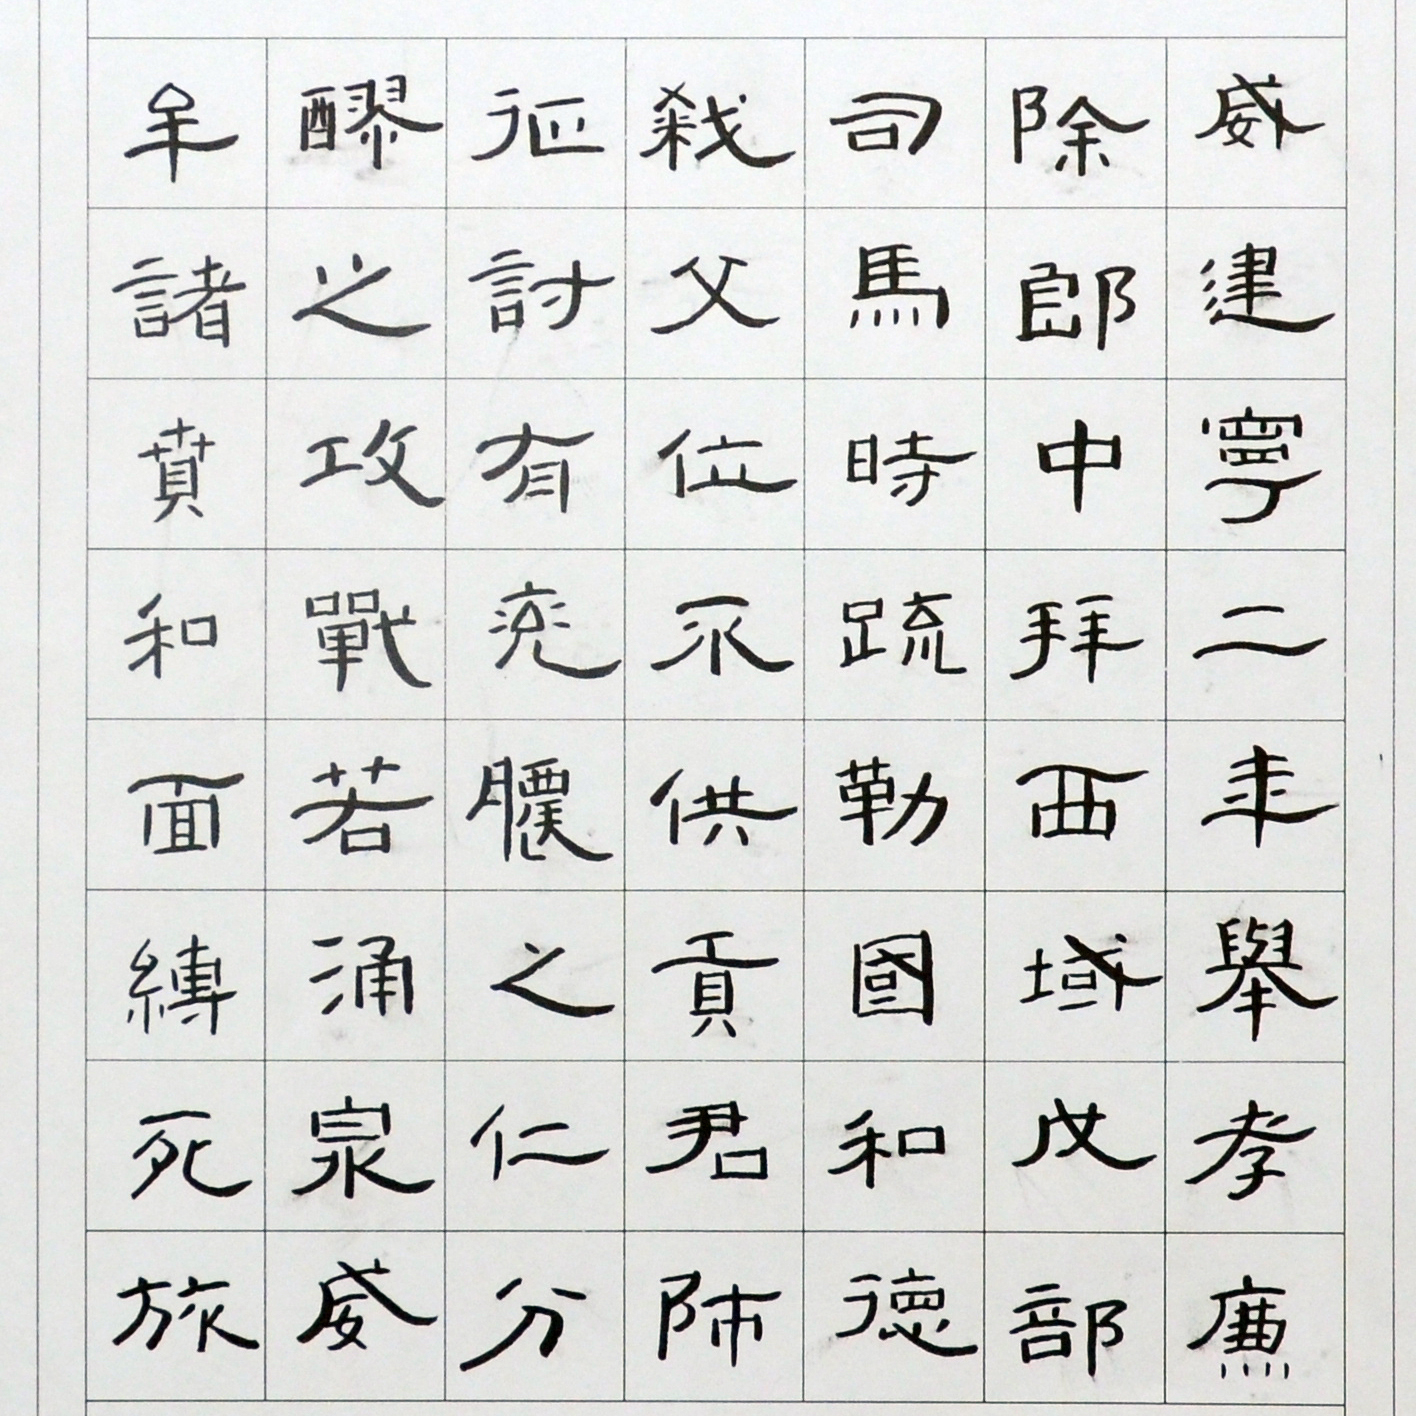 威建寧二年舉孝廉
除郎中拜西域戊部
司馬時疏勒國和德
弒父位不供貢君師
征討有兗膿之仁分
醪之攻戰若涌泉威
牟諸賁和面縛死旅